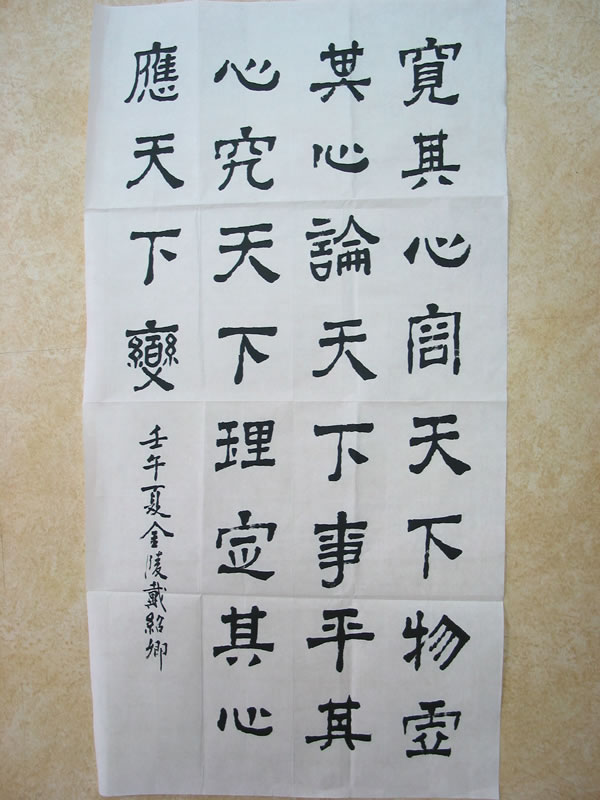 寬其心容天下物虛
其心論天下事平其
心究天下理定其心
應天下變
壬午夏金陵戴紹卿